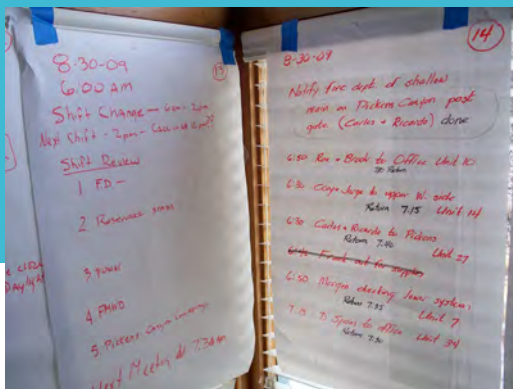 8-30-09
13
6:00 AM
Shift Change
Next Shift - 2pm -
Shift Review
1 FD -
2. Reservoir
3. Power
4. FMWD
5. Pickens Canyon
Next Meeting at 7:30am
14
8-30-09
Notify fire dept. of shallow
main on Pickens Canyon past
gate. (Carlos + Ricardo) done
6:50 Ron + Brook to Office Unit 10
Return
6:30 Jorge to upper W. side
Return 7:15 Unit 14
6:30 Carlos + Ricardo to Pickens
Return 7:40 Unit 27
6:50 checking lower system
Return 7:35 Unit 7
7:15 to office Unit 34
Return 7:30